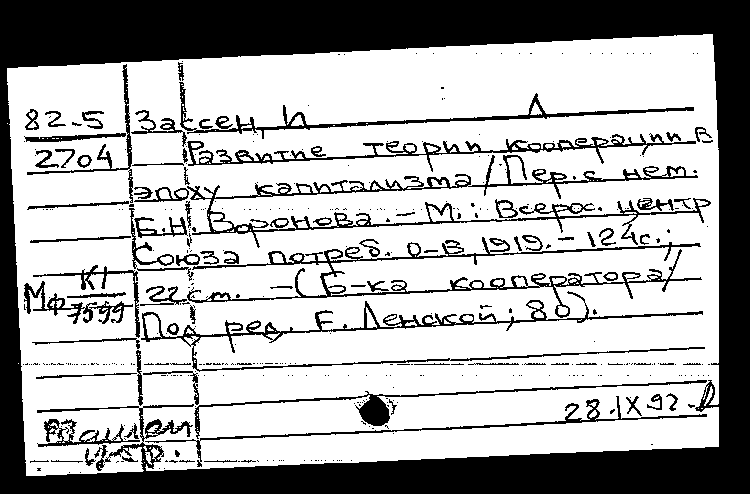 82-5 Зассен, И Л
2704 Развитие теории кооперации в
эпоху капитализма / Пер. с нем.
Б.Н. Воронова. - М.: Всерос. центр
Союза потреб. о-в, 1919. - 124с.;
Мф К1/7599 22 ст. - (Б-ка кооператора /
Под ред. Е. Ленской; 80).
28.IX.92.